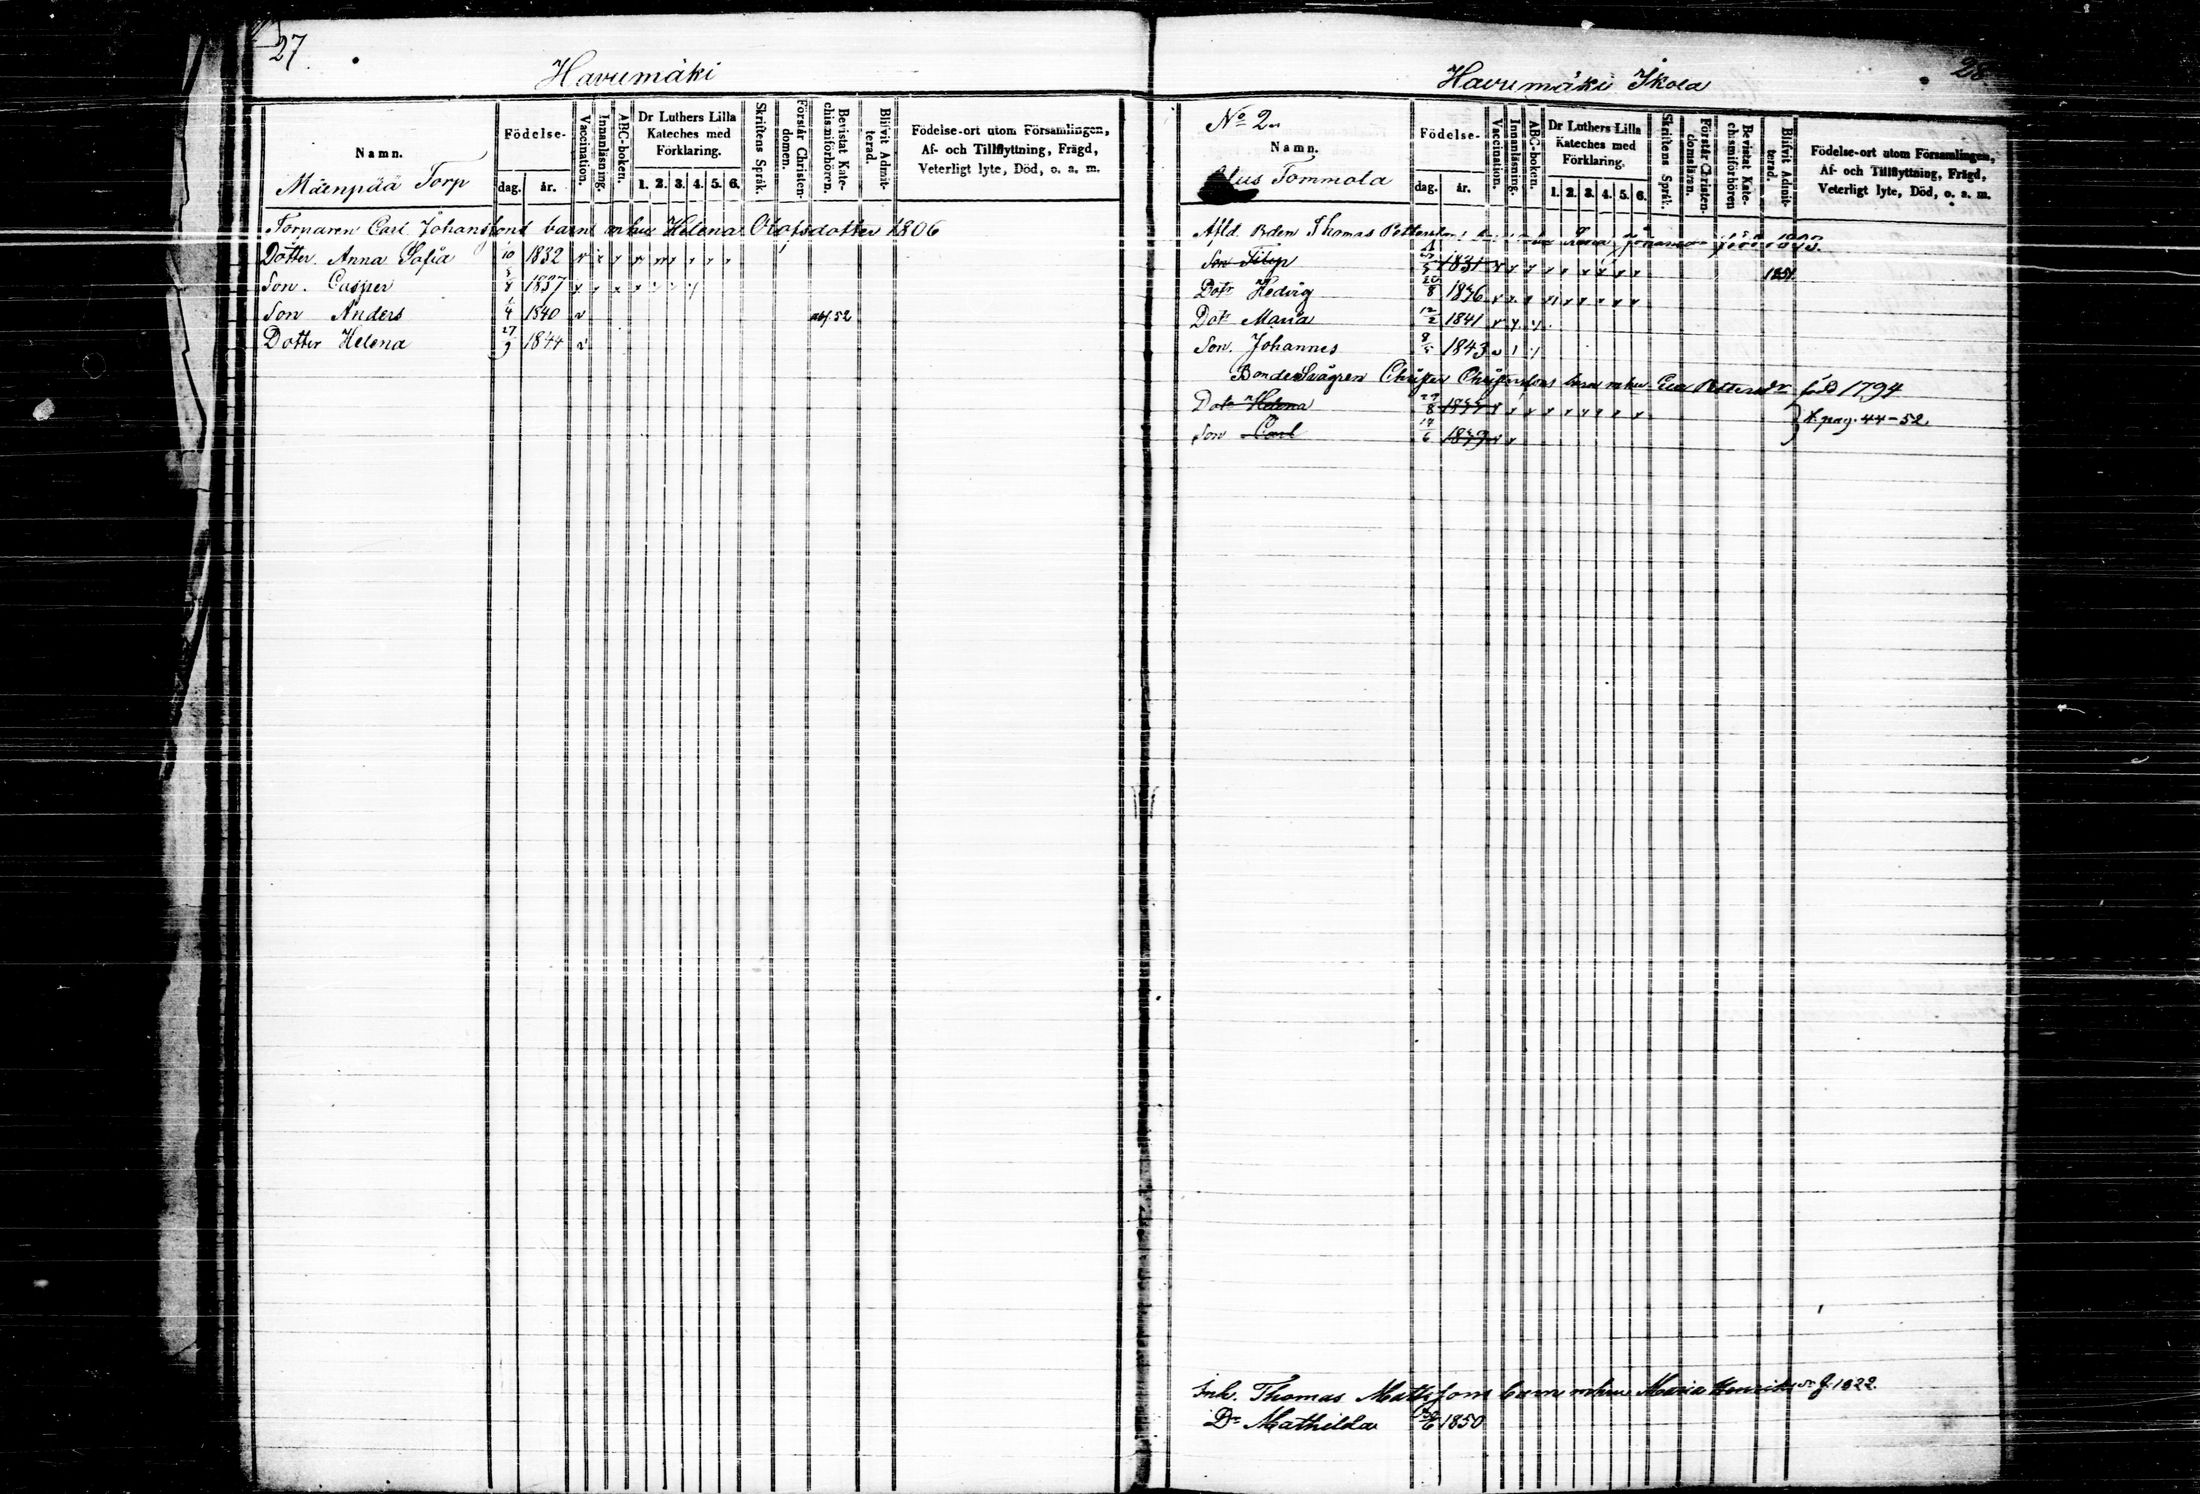 27
Havumäki
Namn.
Mäenpää Torp
Födelse-
dag. år.
Vaccination.
Innanläsning.
ABC-boken.
Dr Luthers Lilla
Kateches med
Förklaring.
1. 2. 3. 4. 5. 6.
Skriftens Språk.
Förstår Christen-
domen.
Bevistat Kate-
chismiförhören.
Blifvit Admit-
terad.
Födelse-ort utom Församlingen,
Af- och Tillflyttning, Frägd,
Veterligt lyte, Död, o. a. m.
Torparen Carl Johanssons barn mhu Helena Olofsdotter 1806
Dotter. Anna Sofia 10 1832
Son. Casper 1837
Son Anders 4 1840
Dotter Helena 27 9 1844
28
Havumäki Skola
No 2
Namn.
Tommola
Födelse-
dag. år.
Vaccination.
Innanläsning.
ABC-boken.
Dr Luthers Lilla
Kateches med
Förklaring.
1. 2. 3. 4. 5. 6.
Skriftens Språk.
Förstår Christen-
domsläran.
Bevistat Kate-
chismiförhören
Blifvit Admit-
terad.
Födelse-ort utom Församlingen,
Af- och Tillflyttning, Frägd,
Veterligt lyte, Död, o. a. m.
Afld. Bden Thomas
Son 1831 1851
Dotr Hedvig 8 1836
Dotr Maria 12 2 1841
Son. Johannes 1843
Bonden Svågren Christer Christerssons barn mhu Eva född 1794
Dotr Helena 8
Son Carl 6 1839
pag. 44-52
Inh. Thomas Mattssons barn mhu Maria f. 1822.
Dr Mathilda 6 1850